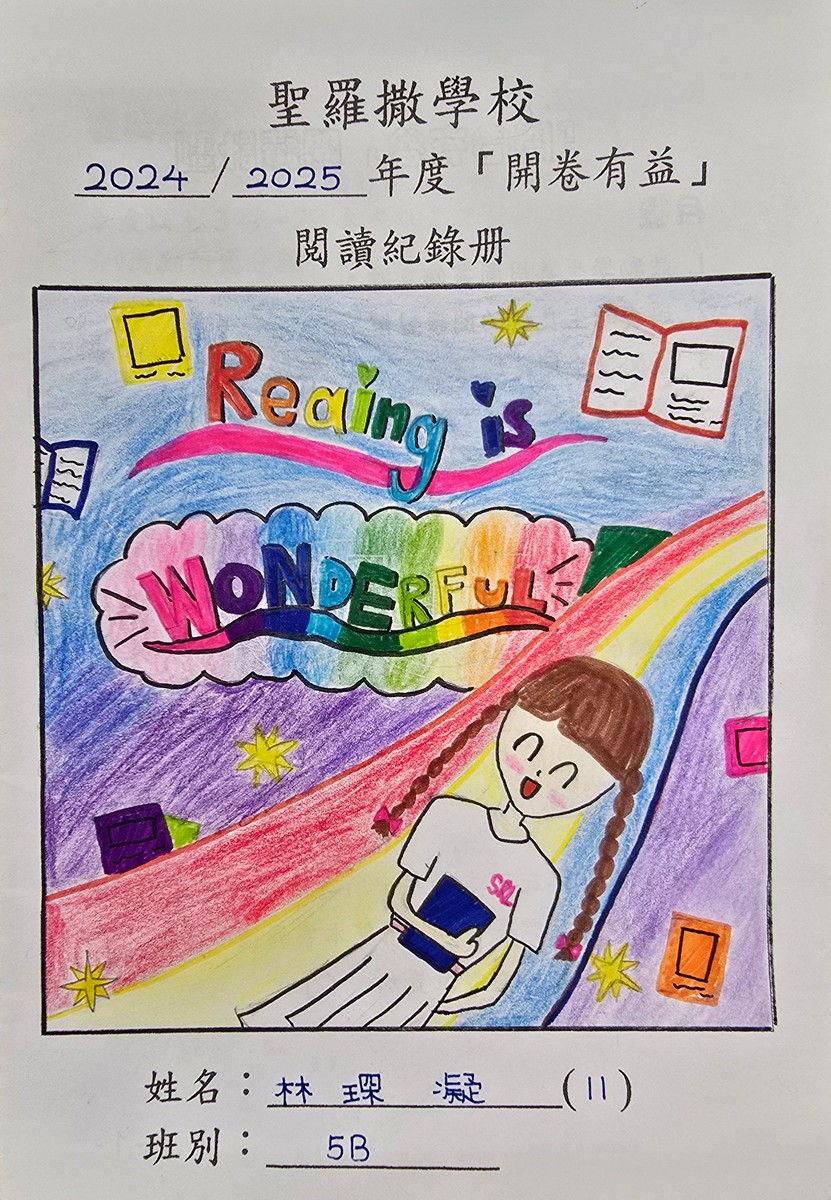 聖羅撒學校
2024 / 2025 年度「開卷有益」
閱讀紀錄冊
Reaing is
WONDERFUL
SRL
姓名：林琛凝 (11)
班別：5B